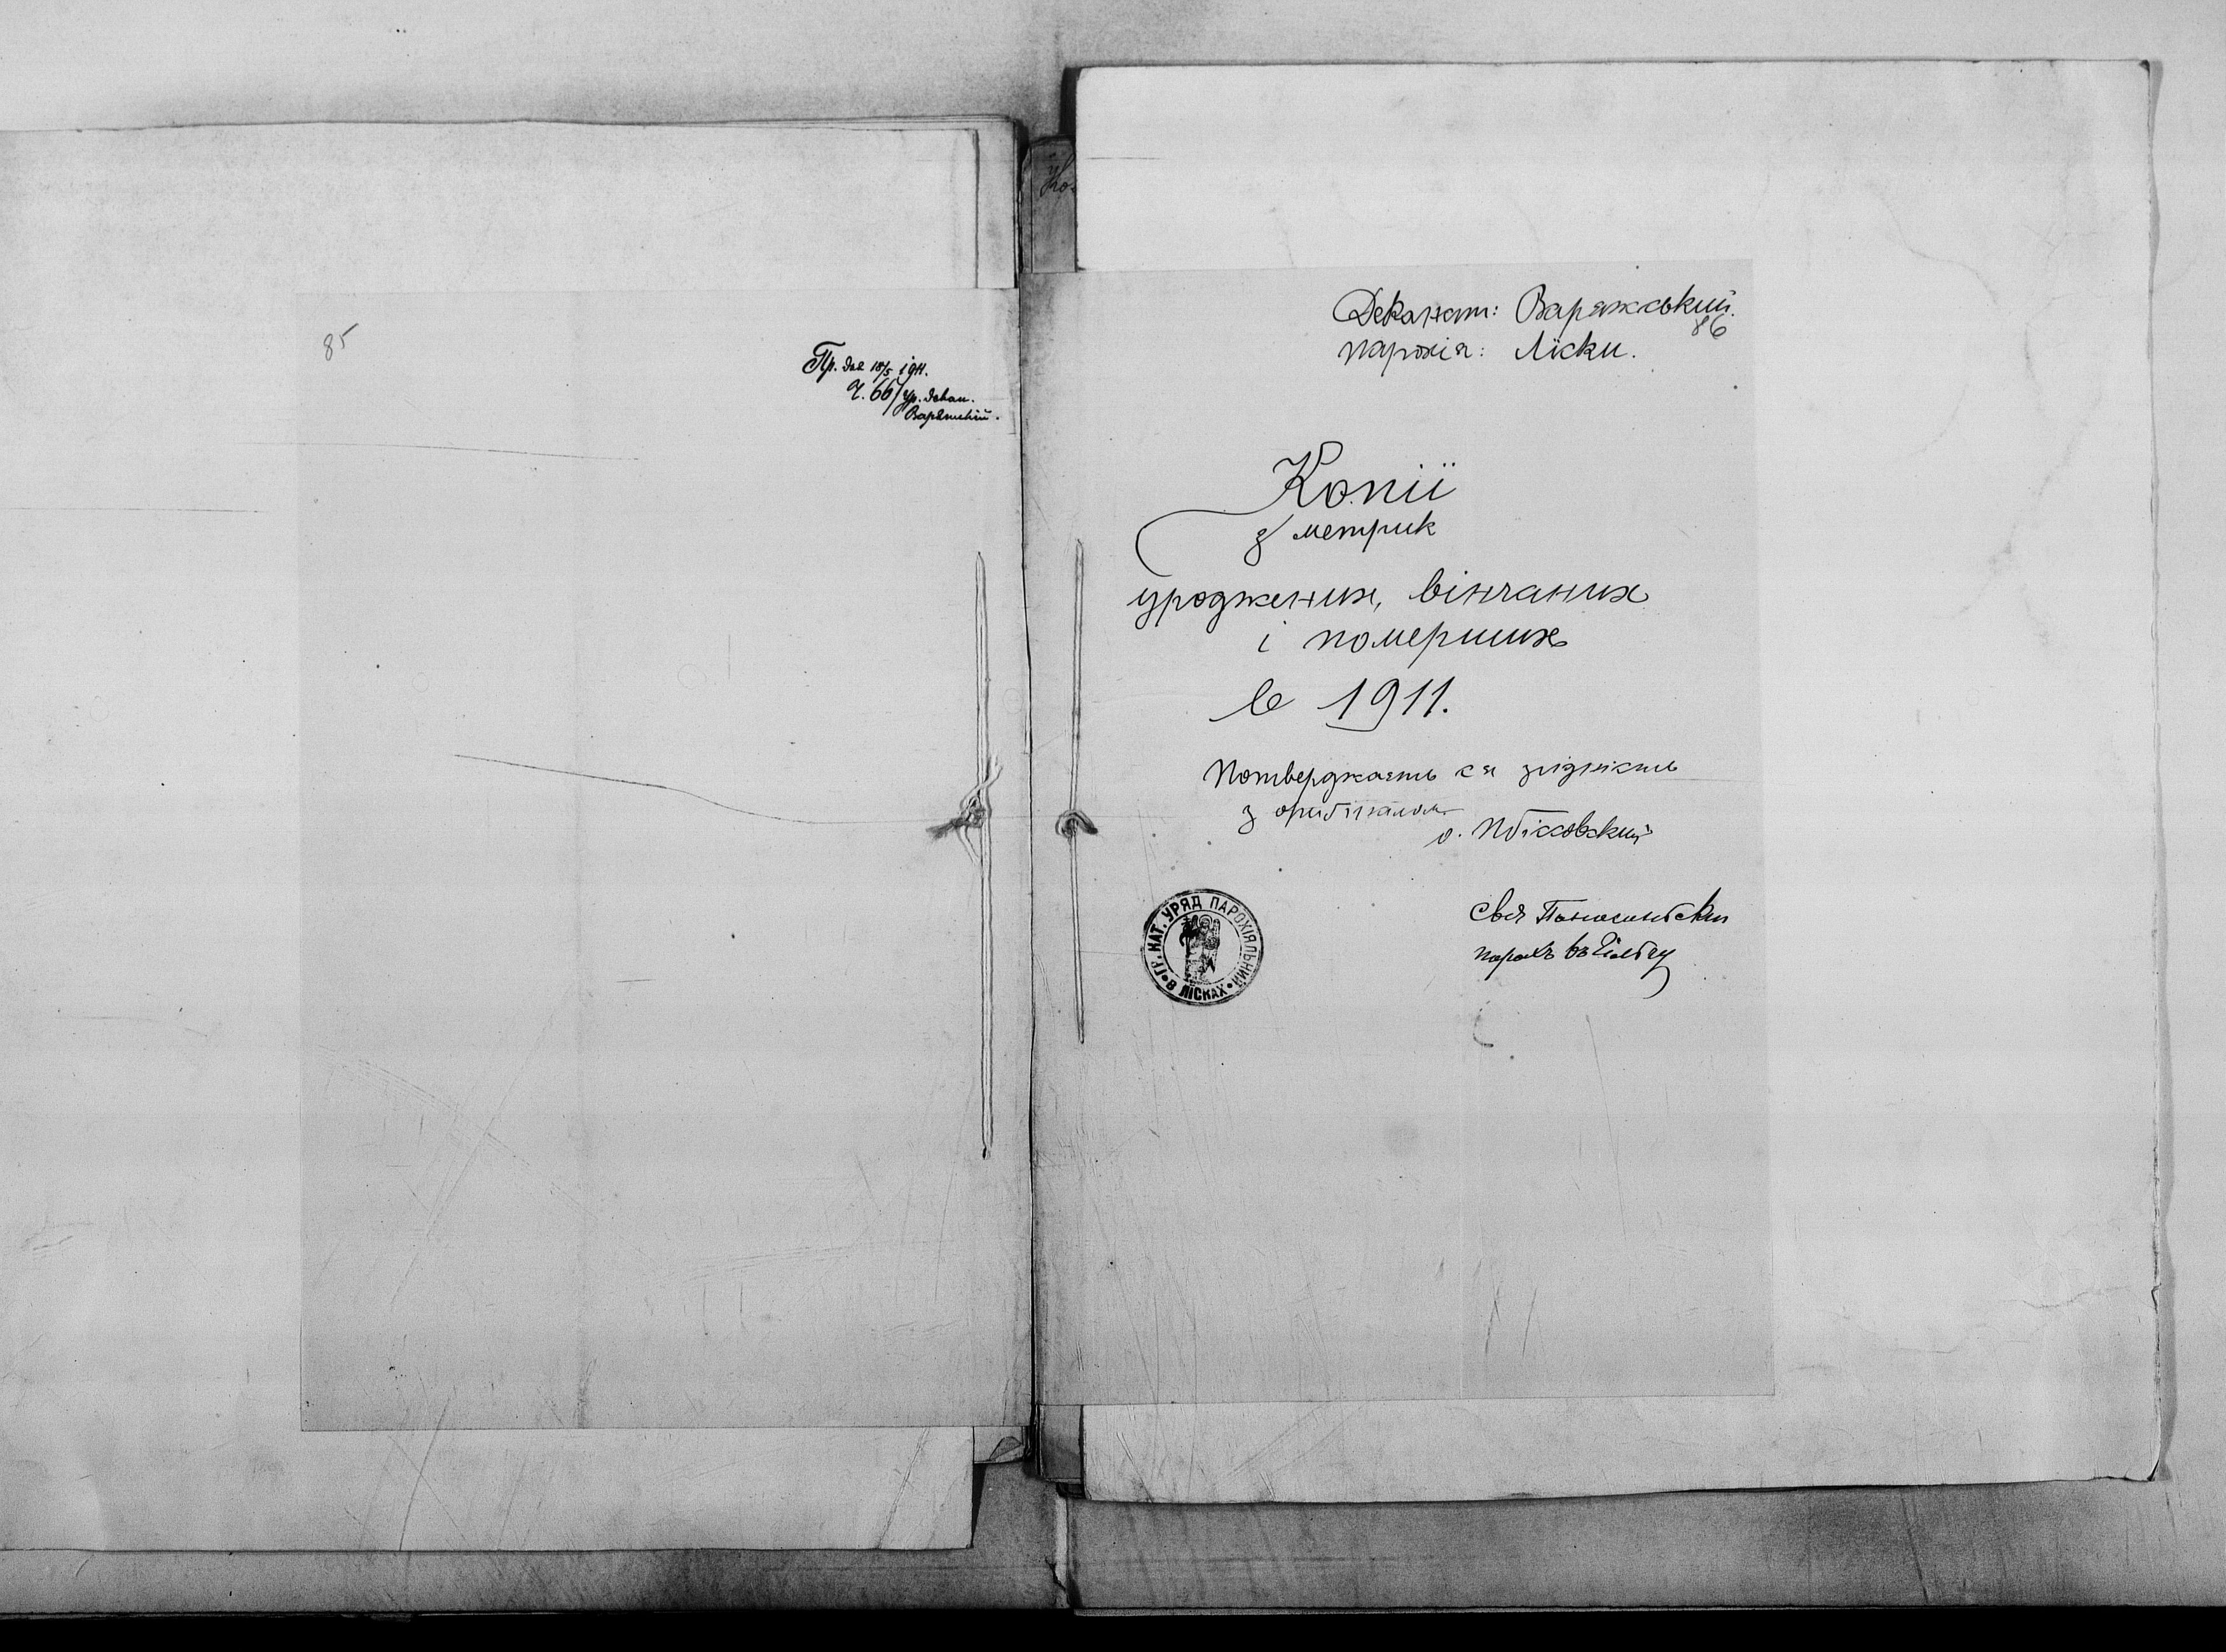 85
Пр. дня 18/5 1911.
Ч. 66/ур. декан.
Варяжкій.
Деканат: Варяжський.
86
парохія: Ліски.
Копії
з метрик
уроджених, вінчаних
і померших
в 1911.
Потверджаєть ся згідність
з оригіналом
о.
парохъ въ
ГР. КАТ. УРЯД ПАРОХІЯЛЬНИЙ
В ЛІСКАХ